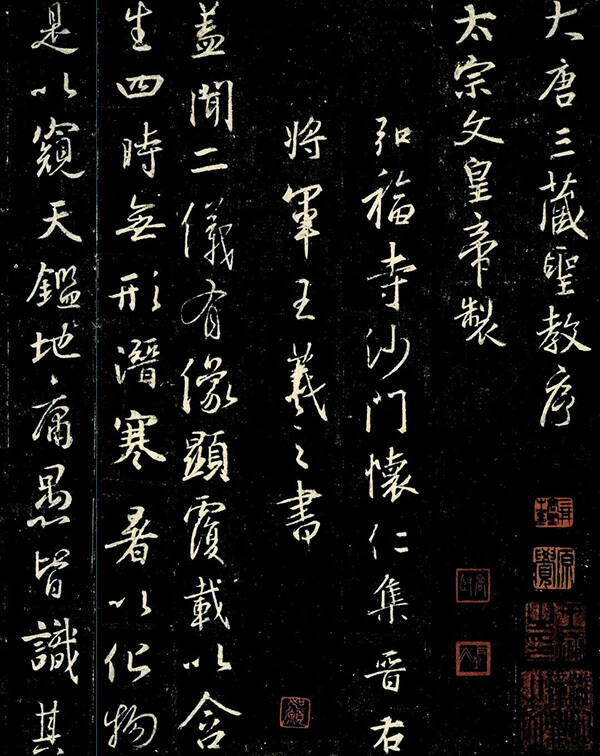 大唐三藏聖教序
太宗文皇帝製
弘福寺沙門懷仁集晉右
將軍王羲之書
蓋聞二儀有像顯覆載以含
生四時無形潛寒暑以化物
是以窺天鑑地庸愚皆識其